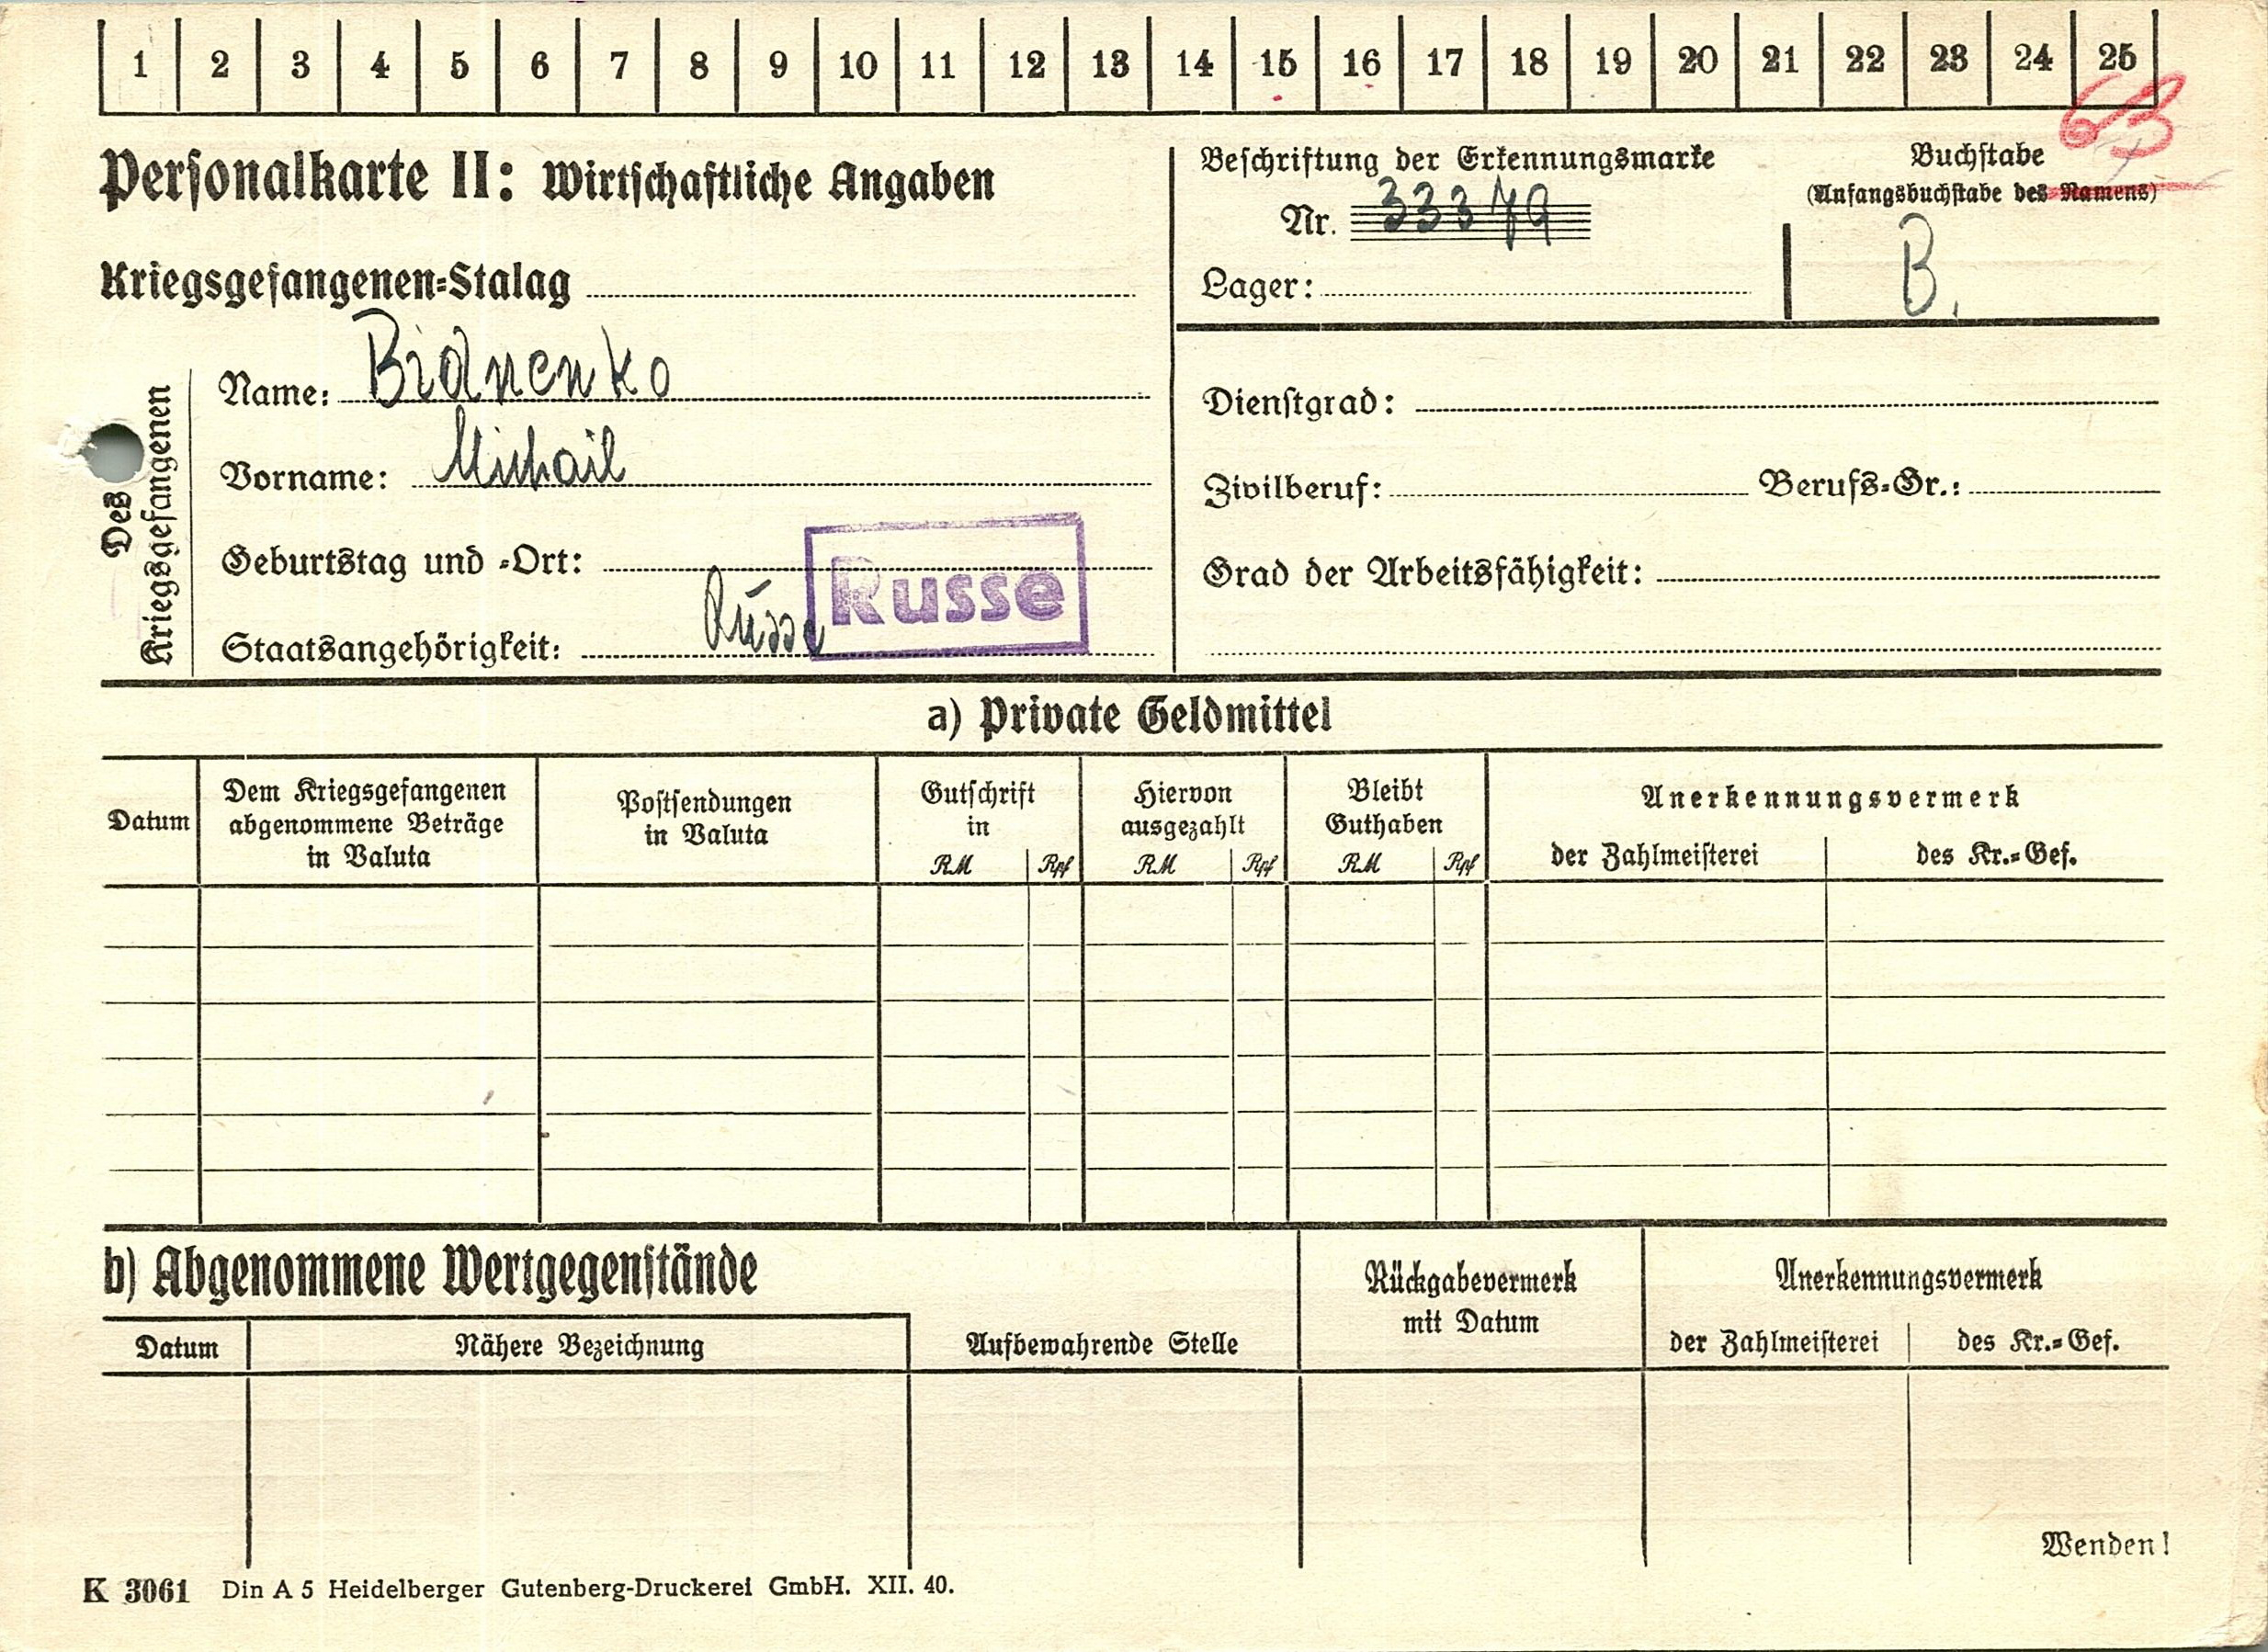 1 2 3 4 5 6 7 8 9 10 11 12 13 14 15 16 17 18 19 20 21 22 23 24 25
Personalkarte II: Wirtschaftliche Angaben
Beschriftung der Erkennungsmarke
Nr. 33379
Lager:
Buchstabe
(Anfangsbuchstabe des Namens)
B.
Kriegsgefangenen-Stalag
Des Kriegsgefangenen
Name: Bidnenko
Vorname: Michail
Geburtstag und -Ort:
Staatsangehörigkeit: Russe
Russe
Dienstgrad:
Zivilberuf: Berufs-Gr.:
Grad der Arbeitsfähigkeit:
a) Private Geldmittel
Datum
Dem Kriegsgefangenen
abgenommene Beträge
in Valuta
Postsendungen
in Valuta
Gutschrift
in
RM Rpf
Hiervon
ausgezahlt
RM Rpf
Bleibt
Guthaben
RM Rpf
Anerkennungsvermerk
der Zahlmeisterei des Kr.-Gef.
b) Abgenommene Wertgegenstände
Datum Nähere Bezeichnung Aufbewahrende Stelle
Rückgabevermerk
mit Datum
Anerkennungsvermerk
der Zahlmeisterei des Kr.-Gef.
Wenden!
K 3061 Din A 5 Heidelberger Gutenberg-Druckerei GmbH. XII. 40.